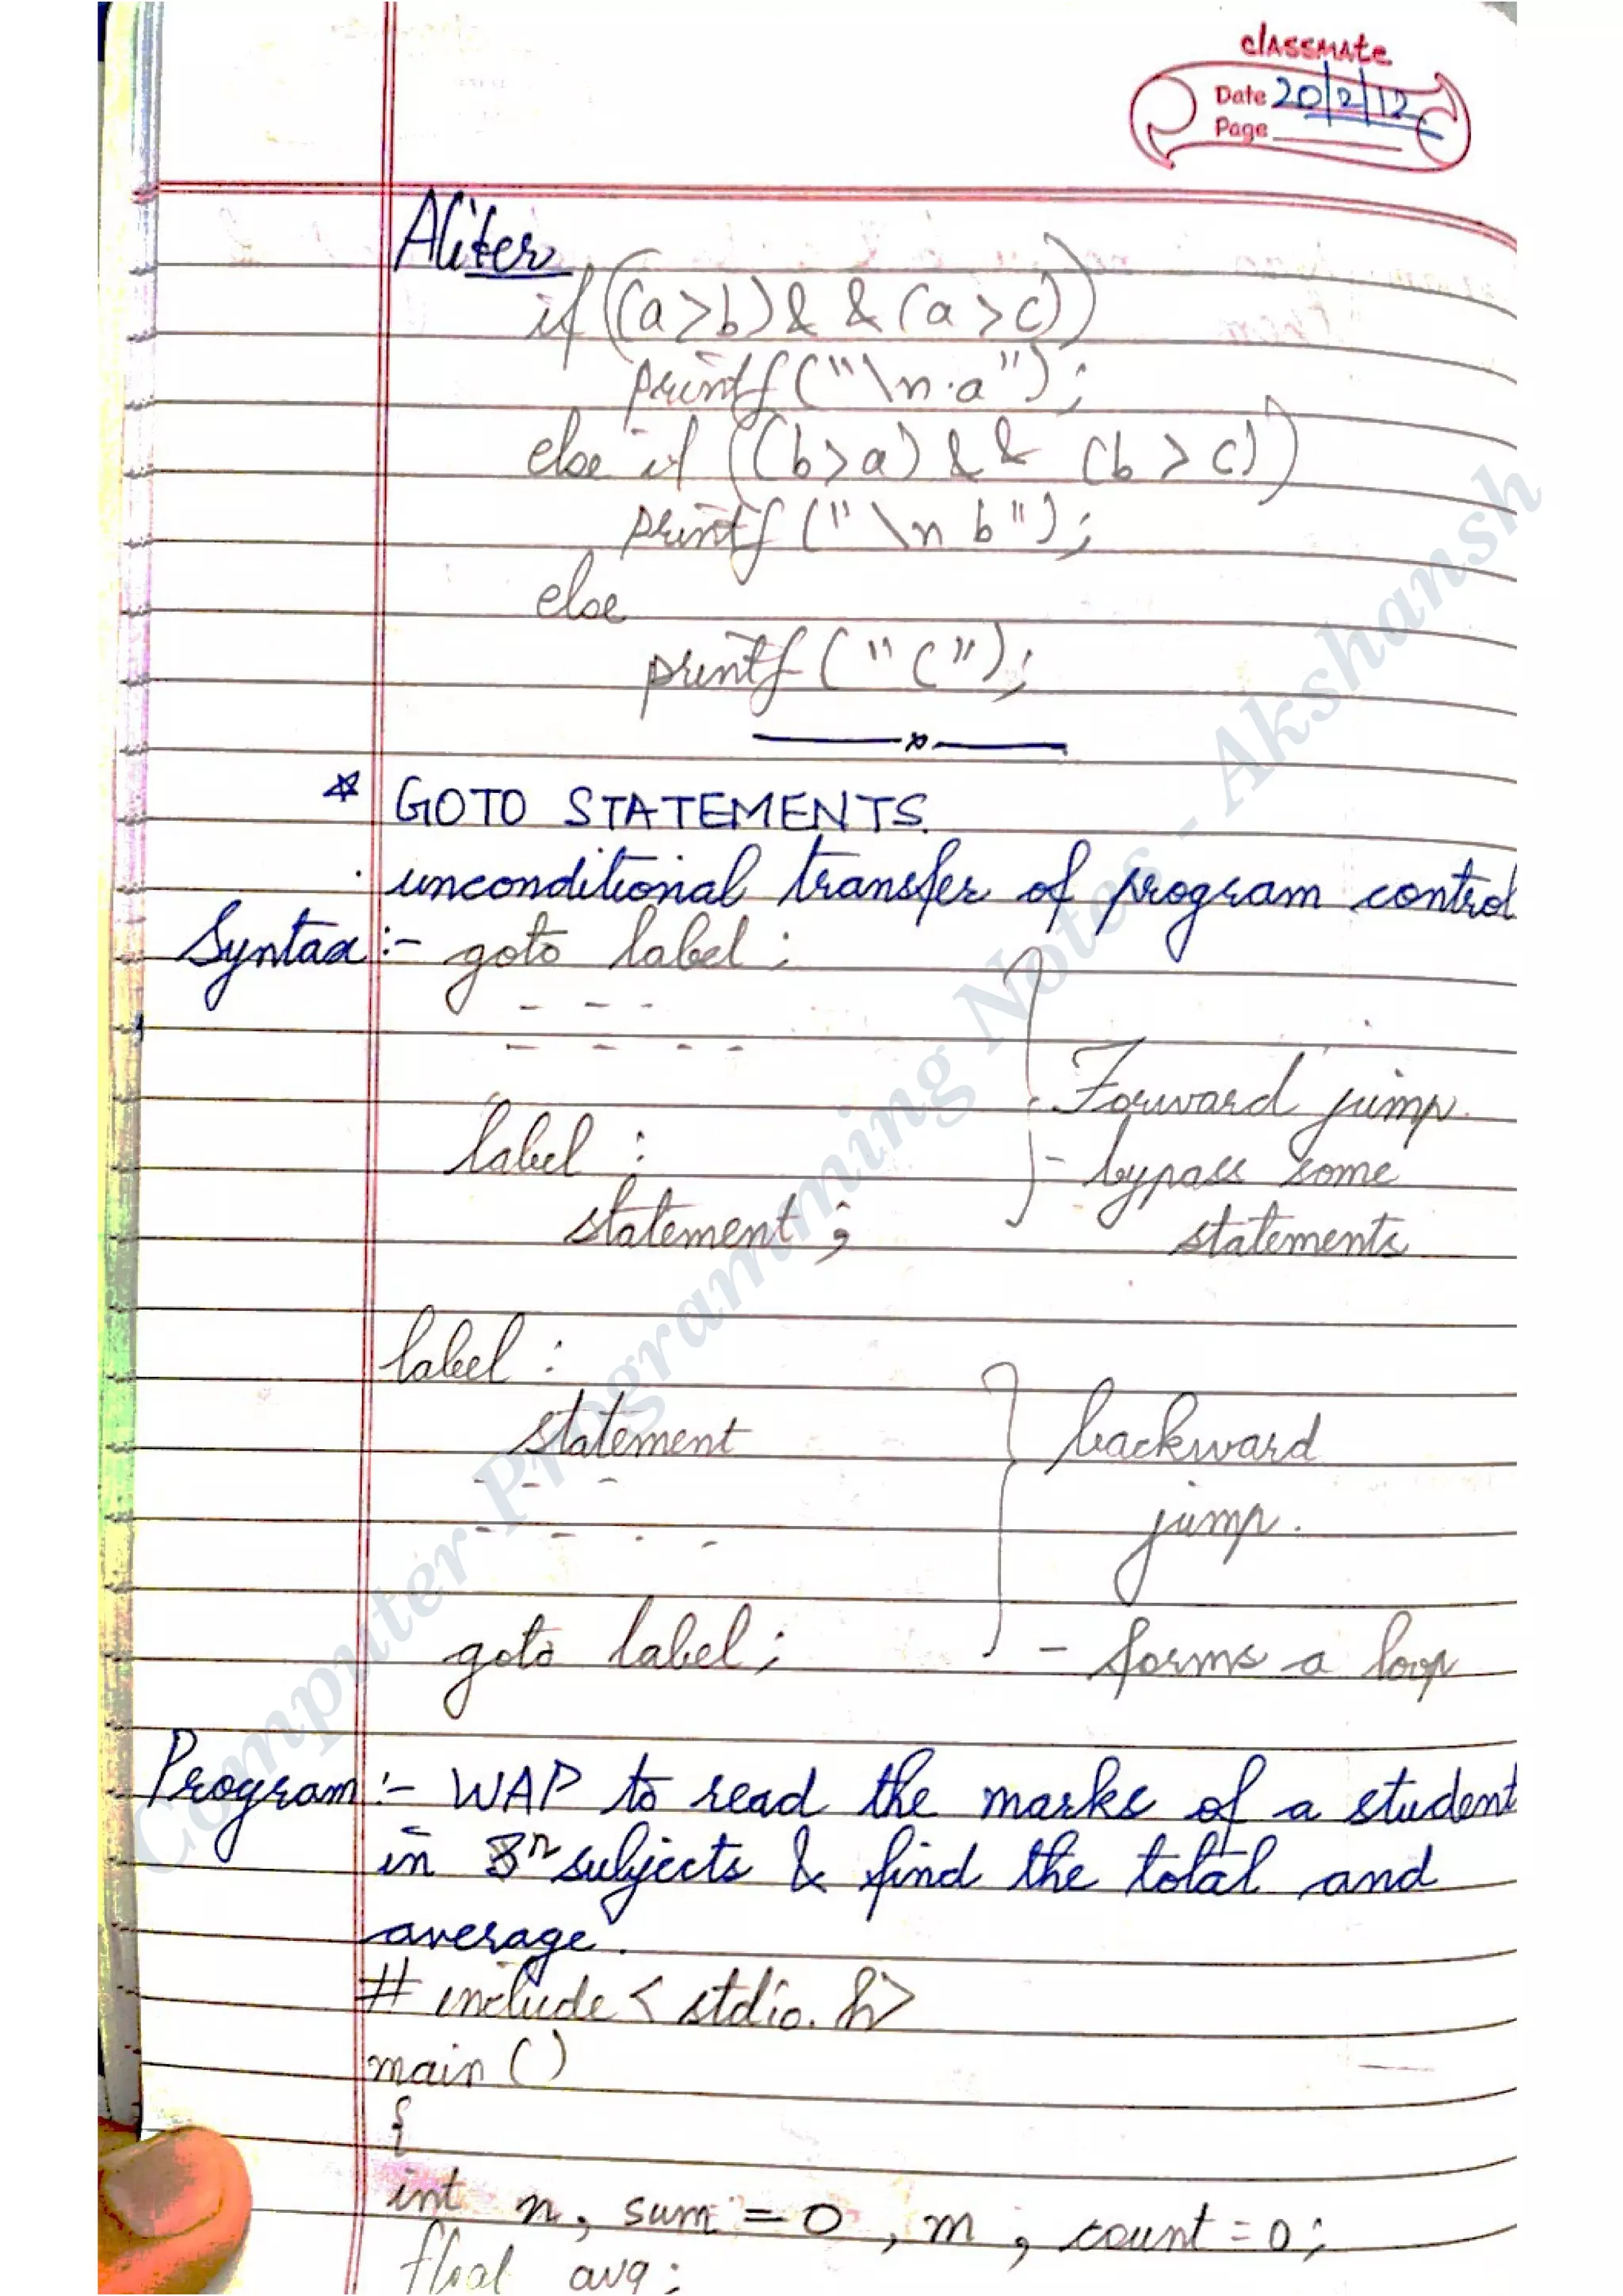 classmate
Date 20/2/12
Page
Aliter
if ((a>b) & & (a>c))
printf ("\n a");
else if ((b>a) & & (b>c))
printf ("\n b");
else
printf ("c");
* GOTO STATEMENTS.
. unconditional transfer of program control
Syntax :- goto label ;
- - -
- - - -
label :
statement ;
Forward jump.
- bypass some
statements
label :
statement
- - -
- - - -
goto label ;
backward
jump.
- forms a loop
Program :- WAP to read the marks of a student
in n subjects & find the total and
average.
# include < stdio.h>
main ()
{
int n, sum = 0, m, count = 0;
float avg ;
Computer Programming Notes - Akshansh